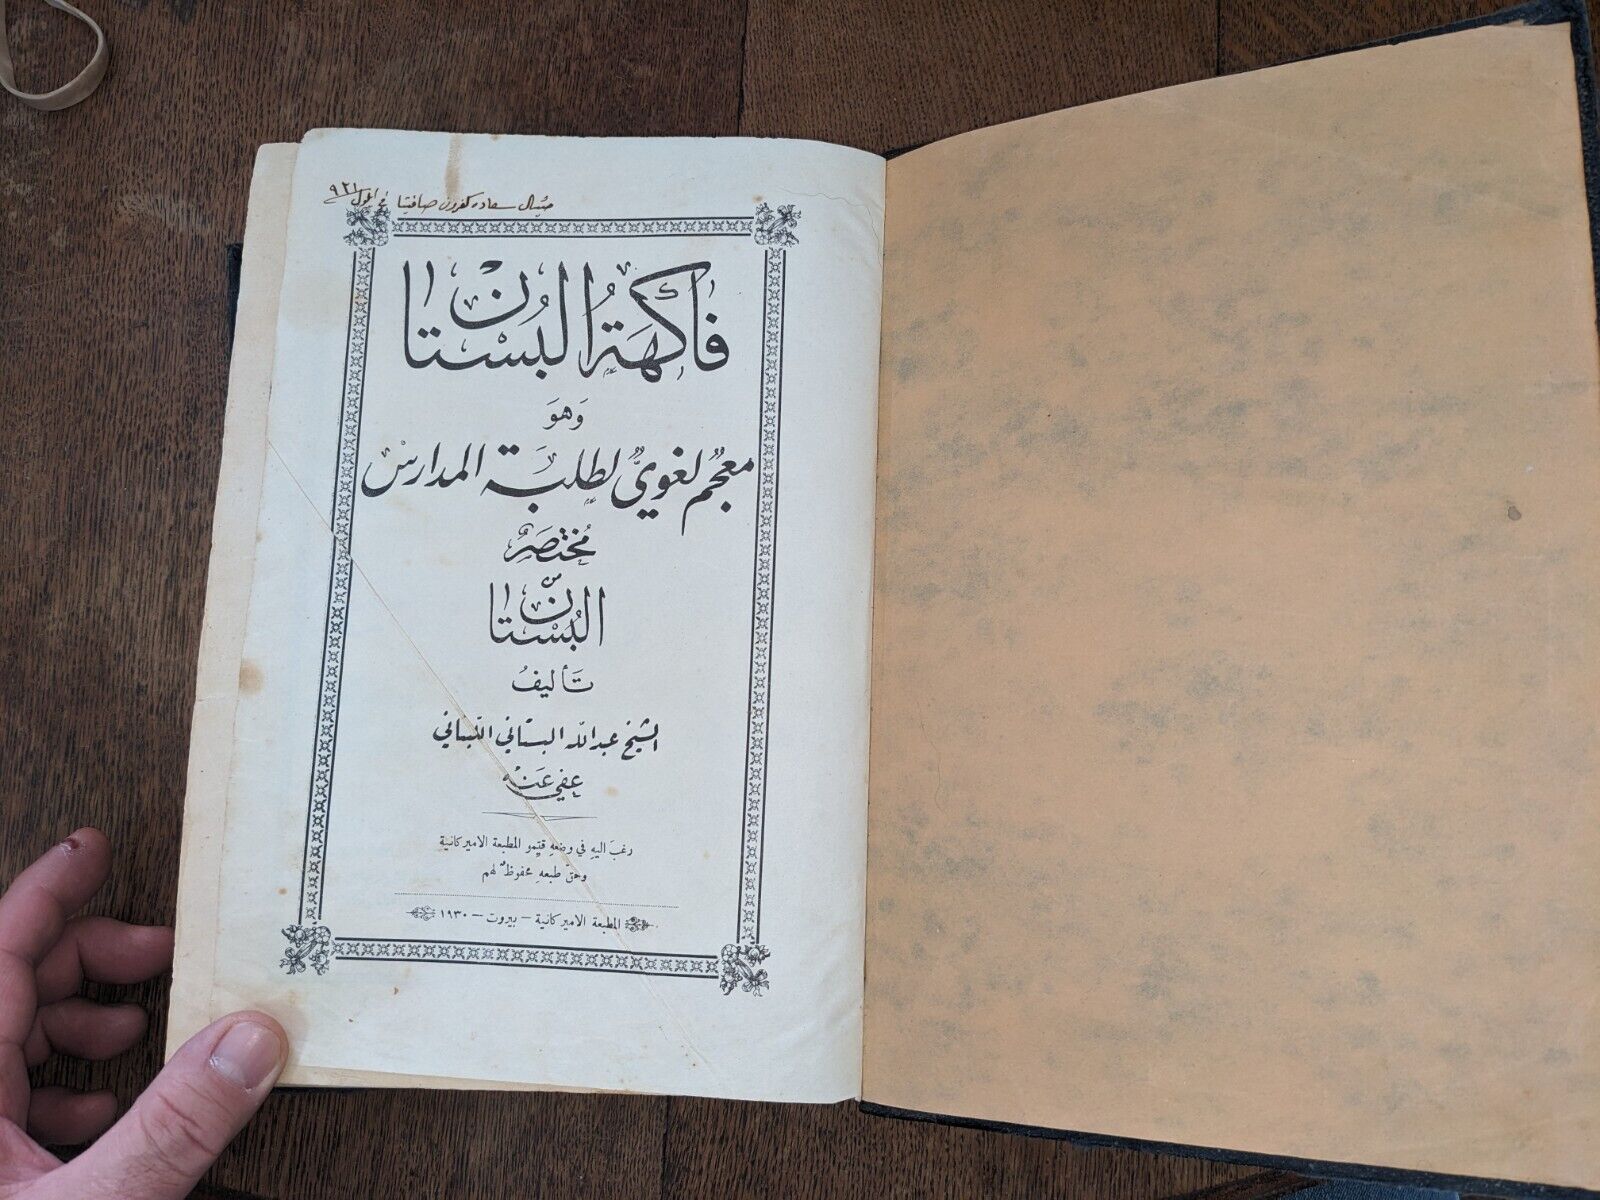 سعاده كفرون صافيتا في ايلول
فَاكِهَةُ البُسْتَان
وَهوَ
معجمٌ لغويٌّ لِطَلَبَةِ المدارسْ
مُختصَرٌ
من
البُسْتَان
تَأليفُ
الشيخ عبد الله البستاني اللبناني
عفي عَنْهُ
رغب اليهِ في وضعهِ قيّمو المطبعة الاميركانية
وحق طبعهِ محفوظٌ لهم
المطبعة الاميركانية – بيروت – ١٩٣٠